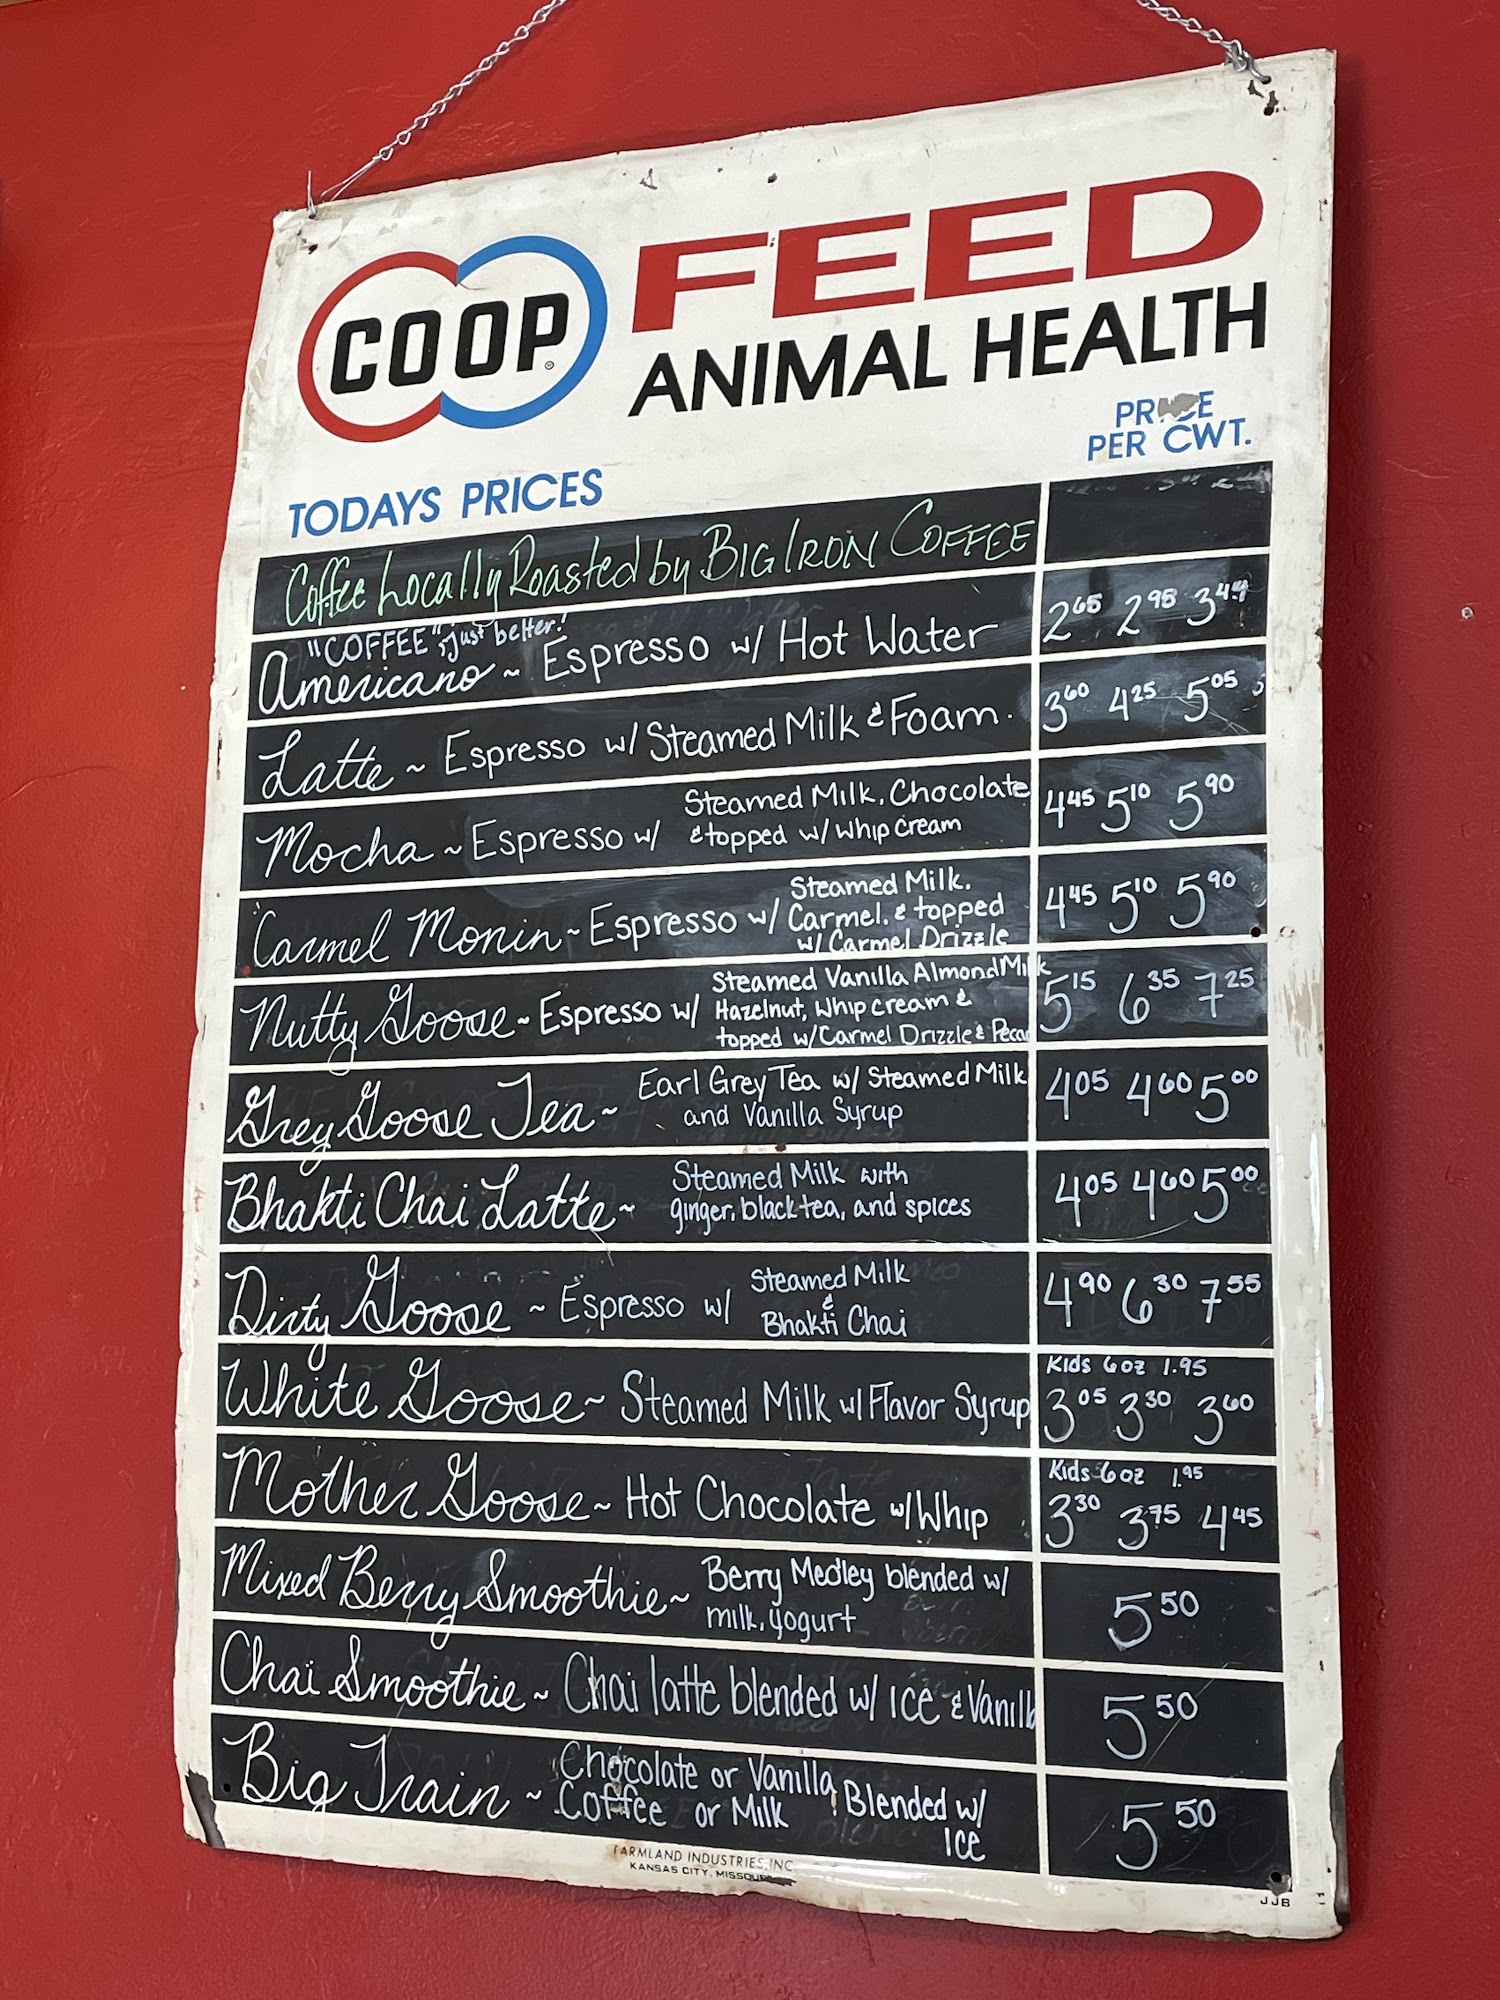 COOP
FEED
ANIMAL HEALTH
PRICE
PER CWT.
TODAYS PRICES
Coffee Locally Roasted by BIG IRON COFFEE
"COFFEE", just better!
Americano ~ Espresso w/ Hot Water 2 65 2 95 3
Latte ~ Espresso w/ Steamed Milk & Foam. 3 60 4 25 5 05
Mocha ~ Espresso w/ Steamed Milk, Chocolate 4 45 5 10 5 90
& topped w/ Whip cream
Carmel Monin ~ Espresso w/ Steamed Milk, 4 45 5 10 5 90
Carmel, & topped
w/ Carmel Drizzle
Nutty Goose ~ Espresso w/ Steamed Vanilla Almond Milk 5 15 6 35 7 25
Hazelnut, Whip cream &
topped w/ Carmel Drizzle & Pecan
Grey Goose Tea ~ Earl Grey Tea w/ Steamed Milk 4 05 4 60 5 00
and Vanilla Syrup
Bhakti Chai Latte ~ Steamed Milk with 4 05 4 60 5 00
ginger, black tea, and spices
Dirty Goose ~ Espresso w/ Steamed Milk 4 90 6 30 7 55
&
Bhakti Chai
Kids 6oz 1.95
White Goose ~ Steamed Milk w/ Flavor Syrup 3 05 3 30 3 60
Kids 6oz 1.95
Mother Goose ~ Hot Chocolate w/ Whip 3 30 3 75 4 45
Mixed Berry Smoothie ~ Berry Medley blended w/ 5 50
milk, yogurt
Chai Smoothie ~ Chai latte blended w/ ICE & Vanill 5 50
Big Train ~ Chocolate or Vanilla Blended w/ 5 50
Coffee or Milk ICE
FARMLAND INDUSTRIES, INC.
KANSAS CITY, MISSOURI
JJB